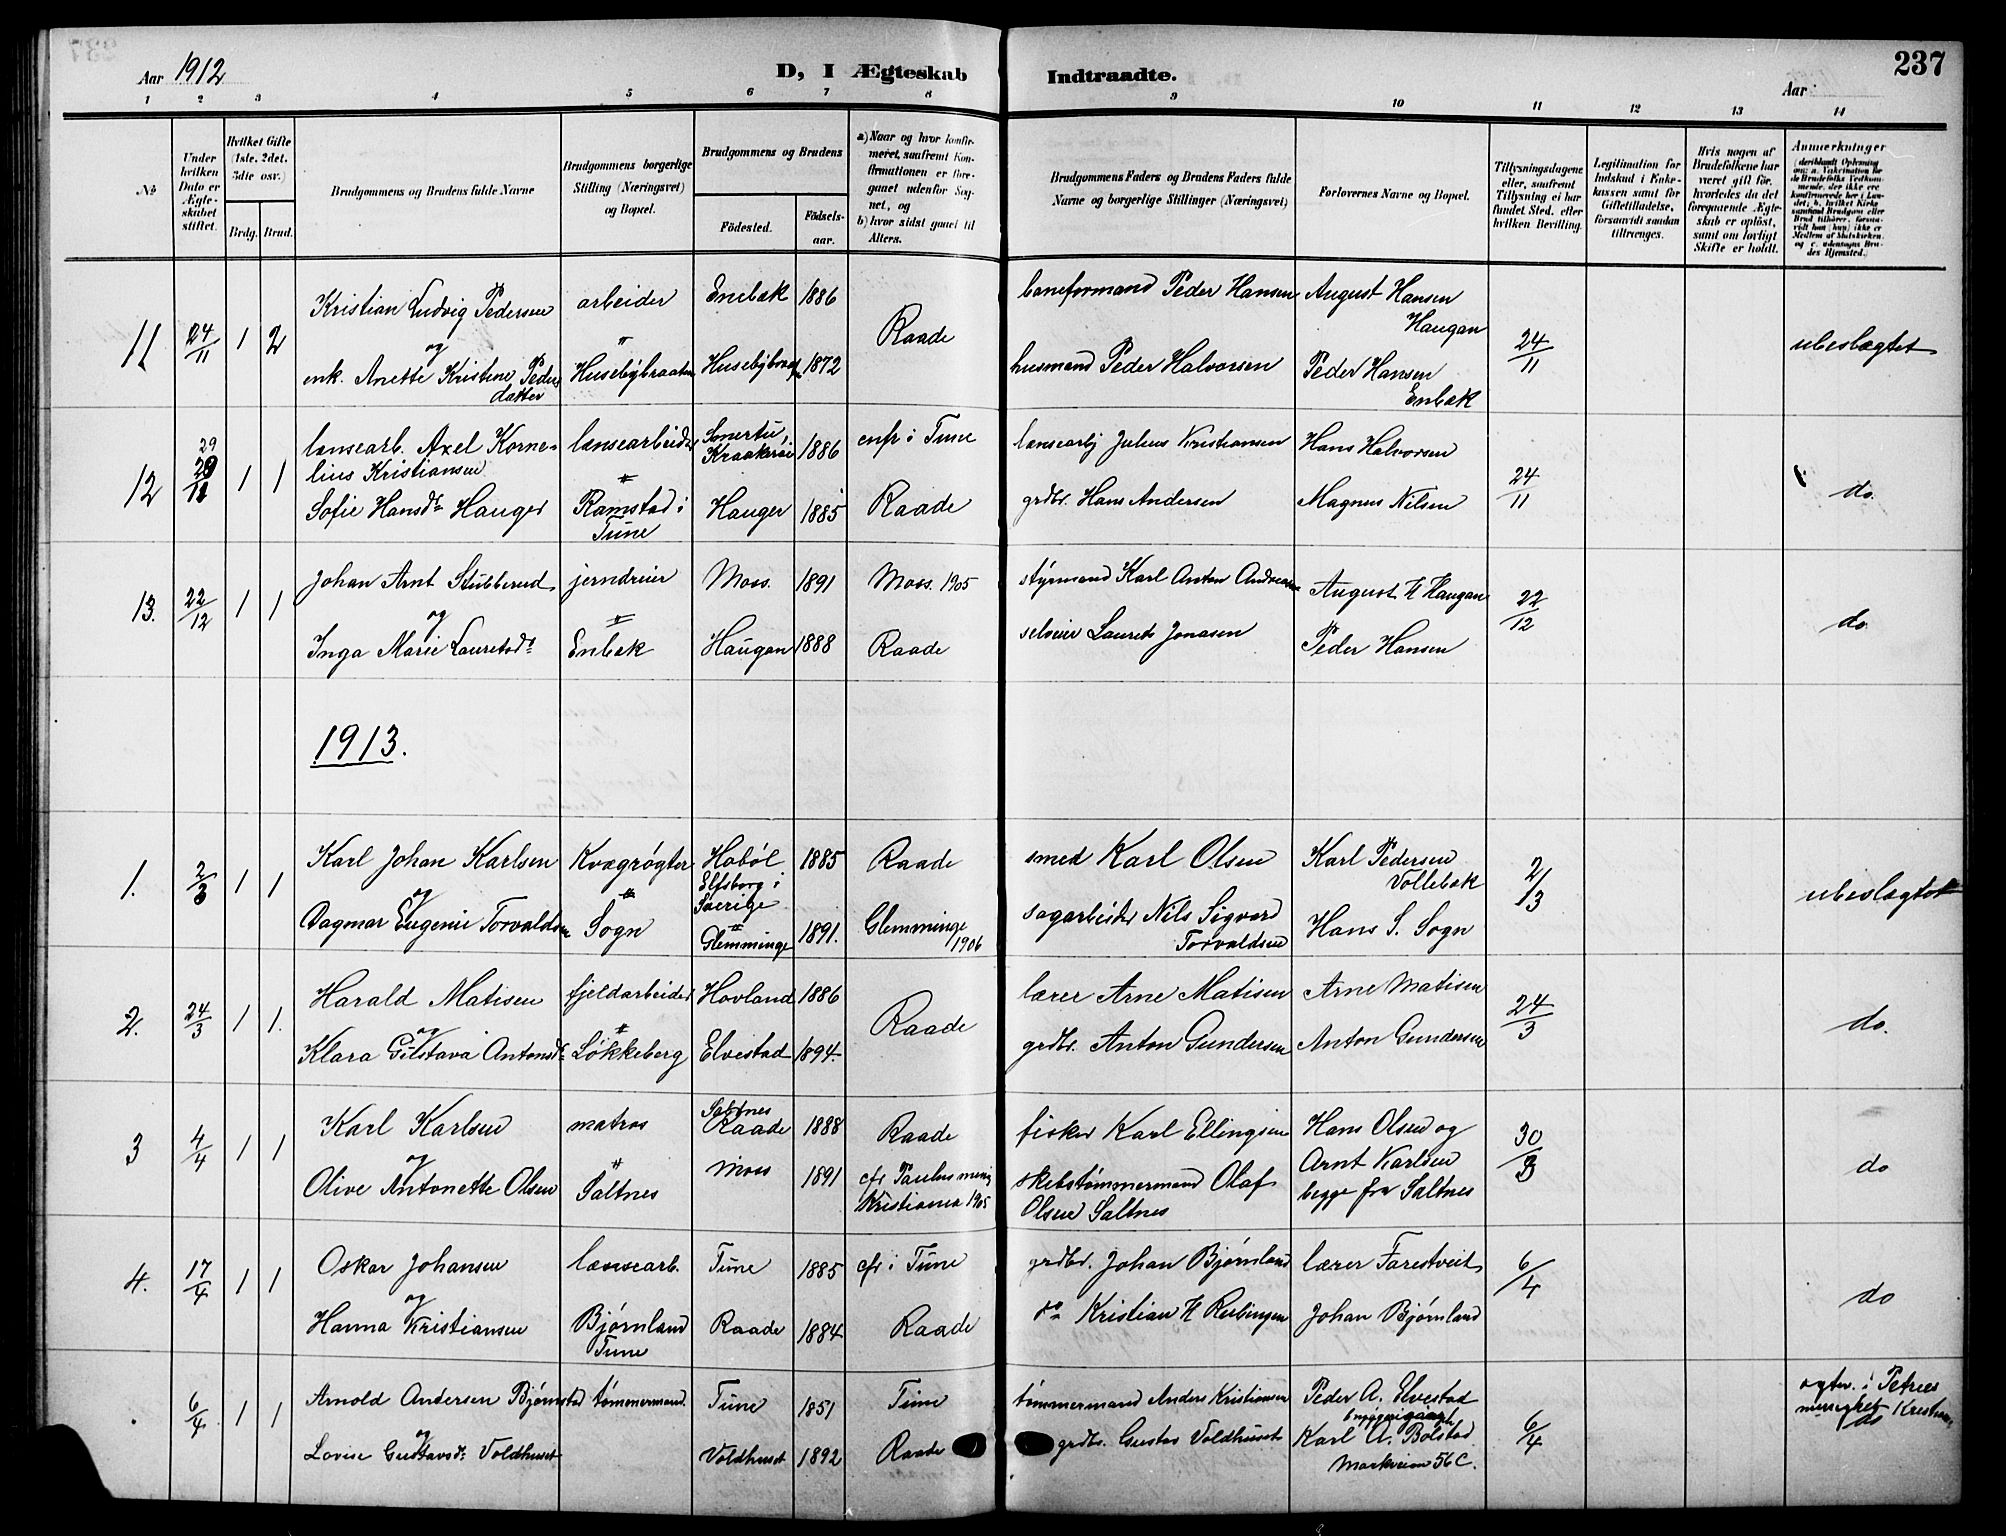 237
Aar 1912
D, I Ægteskab
Indtraadte.
Aar
1 2 3 4 5 6 7 8 9 10 11 12 13 14
No
Under hvilken Dato er Ægteskabet stiftet.
Hvilket Gifte (1ste, 2det, 3die osv.)
Brdg. Brud.
Brudgommens og Brudens fulde Navne
Brudgommens borgerlige Stilling (Næringsvei) og Bopæl.
Brudgommens og Brudens
Födested.
Födselsaar.
a) Naar og hvor konfirmeret, saafremt Konfirmationen er foregaaet udenfor Sognet, og
b) hvor sidst gaaet til Alters.
Brudgommens Faders og Brudens Faders fulde Navne og borgerlige Stillinger (Næringsvei)
Forlovernes Navne og Bopæl.
Tillysningsdagene eller, saafremt Tillysning ei har fundet Sted, efter hvilken Bevilling.
Legitimation for Indskud i Enkekassen samt for Giftetilladelse, forsaavidt saadan tiltrænges.
Hvis nogen af Brudefolkene har været gift för, hvorledes da det foregaaende Ægteskab er oplöst, samt om lovligt Skifte er holdt.
Anmerkninger
11 24/11 1 2
Kristian Ludvig Pedersen
og
enk. Anette Kristine Peders
datter
arbeider
"
Husebybraaten
Enebæk 1886
1872
Raade
baneformand Peder Hansen
husmand Peder Halvorsen
August Hansen
Haugan
Peder Hansen
Enbæk
24/11
ubeslægtet
12 29 1 1
lænsearb. Axel Korne-
lius Kristiansen
Sofie Hansdr Hauger
lænsearbeider
"
Ramstad i
Tune
1886
Hauger 1885
cnfr i Tune
Raade
lænsearbj Julius Kristiansen
grdbr. Hans Andersen
Hans Halvorsen
Magnus Nilsen
24/11
do.
13. 22/12 1 1
Johan Arnt Stubberud
og
Inga Marie Lauretsdr
jerndreier
"
Enbæk
Moss. 1891
Haugan 1888
Moss. 1905
Raade
styrmand Karl Anton Andreasen
selveier Laurets Jonasen
August H Haugan
Peder Hansen
22/12
do.
1913.
1. 2/3 1 1
Karl Johan Karlsen
og
Dagmar Eugenie Torvaldsen
Kvægrøgter
"
Sogn
Hobøl 1885
Elfsborg i
Sverige
"
Glemminge 1891.
Raade
Glemminge
1906
smed Karl Olsen
sagarbeider Nils Sigvard
Torvaldsen
Karl Pedersen
Vollebæk
Hans S. Sogn
2/3
ubeslægtet
2. 24/3 1 1.
Harald Matisen
og
Klara Gustava Antonsdr
fjeldarbeider
"
Løkkeberg
Hovland 1886
Elvestad 1894.
Raade
lærer Arne Matisen
grdbr. Anton Gundersen
Arne Matisen
Anton Gundersen
24/3
do.
3 4/4 1 1
Karl Karlsen
og
Olive Antonette Olsen
matros
"
Saltnes
Saltnes
Raade 1888
Moss 1891
Raade
cfr Paulus menig
Kristiania 1905
fisker Karl Ellingsen
skibstømmermand Olaf
Olsen Saltnes
Hans Olsen og
Arnt Karlsen
begge fra Saltnes
30/3
do
4. 17/4 1 1
Oskar Johansen
og
Hanna Kristiansen
lænsearb.
Bjørnland
Tune
Tune 1885
Raade 1884
cfr i Tune
Raade
grdbr. Johan Bjørnland
do Kristian H
lærer Farestveit
Johan Bjørnland
6/4
do
6/4 1 1
Arnold Andersen Bjørnstad
og
Lovise Gustavsdr Voldhuset
tømmermand.
Tune 1851
Voldhuset 1892
Tune
Raade
tømmermand Anders Kristiansen
grdbr. Gustav Voldhuset
Peder A. Elvestad
Karl A. Bolstad
Markveien 56 C.
6/4
i Petrus
menighet
do